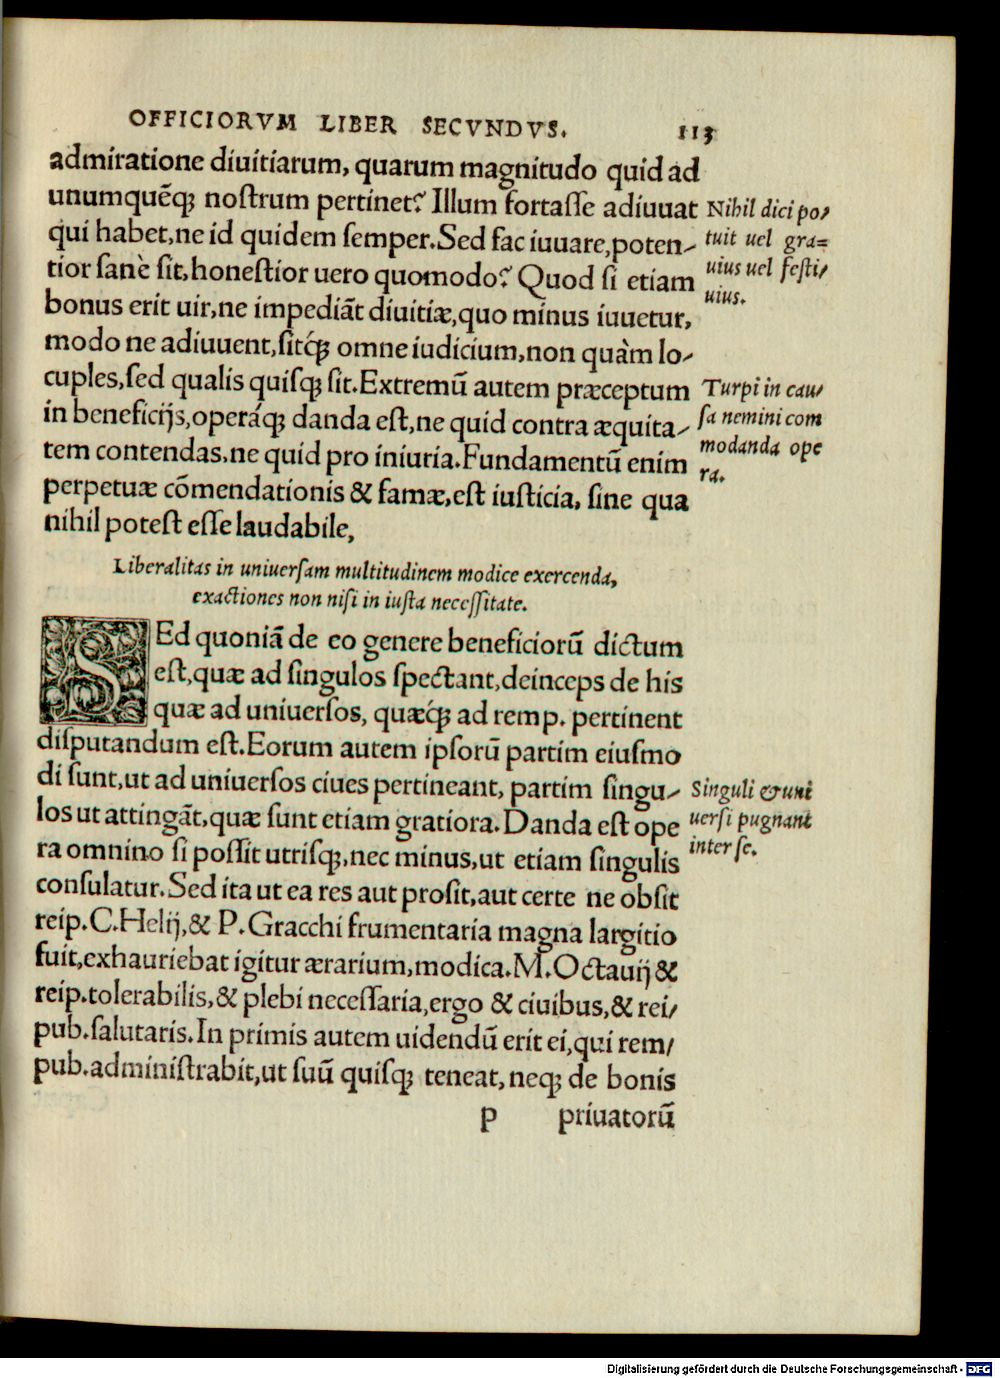 OFFICIORVM LIBER SECVNDVS. 113
admiratione diuitiarum, quarum magnitudo quid ad
unumquẽq; noſtrum pertinet? Illum fortaſſe adiuuat
qui habet, ne id quidem ſemper. Sed fac iuuare, poten-
tior ſanè ſit, honeſtior uero quomodo? Quod ſi etiam
bonus erit uir, ne impediãt diuitiæ, quo minus iuuetur,
modo ne adiuuent, ſitq́; omne iudicium, non quàm lo-
cuples, ſed qualis quiſq; ſit. Extremũ autem præceptum
in beneficijs, operáq; danda eſt, ne quid contra æquita-
tem contendas, ne quid pro iniuria. Fundamentũ enim
perpetuæ cõmendationis & famæ, eſt iuſticia, ſine qua
nihil poteſt eſſe laudabile,
Nihil dici po-
tuit uel gra=
uius uel feſti-
uius.
Turpi in cau-
ſa nemini com
modanda ope
ra.
Liberalitas in uniuerſam multitudinem modice exercenda,
exactiones non niſi in iuſta neceſſitate.
SEd quoniã de eo genere beneficiorũ dictum
eſt, quæ ad ſingulos ſpectant, deinceps de his
quæ ad uniuerſos, quæq́; ad remp. pertinent
diſputandum eſt. Eorum autem ipſorũ partim eiuſmo
di ſunt, ut ad uniuerſos ciues pertineant, partim ſingu-
los ut attingãt, quæ ſunt etiam gratiora. Danda eſt ope
ra omnino ſi poſſit utriſq;, nec minus, ut etiam ſingulis
conſulatur. Sed ita ut ea res aut proſit, aut certe ne obſit
reip. C. Helij, & P. Gracchi frumentaria magna largitio
fuit, exhauriebat igitur ærarium, modica. M. Octauij &
reip. tolerabilis, & plebi neceſſaria, ergo & ciuibus, & rei-
pub. ſalutaris. In primis autem uidendũ erit ei, qui rem-
pub. adminiſtrabit, ut ſuũ quiſq; teneat, neq; de bonis
Singuli & uni
uerſi pugnant
inter ſe.
p priuatorũ
Digitalisierung gefördert durch die Deutsche Forschungsgemeinschaft - DFG